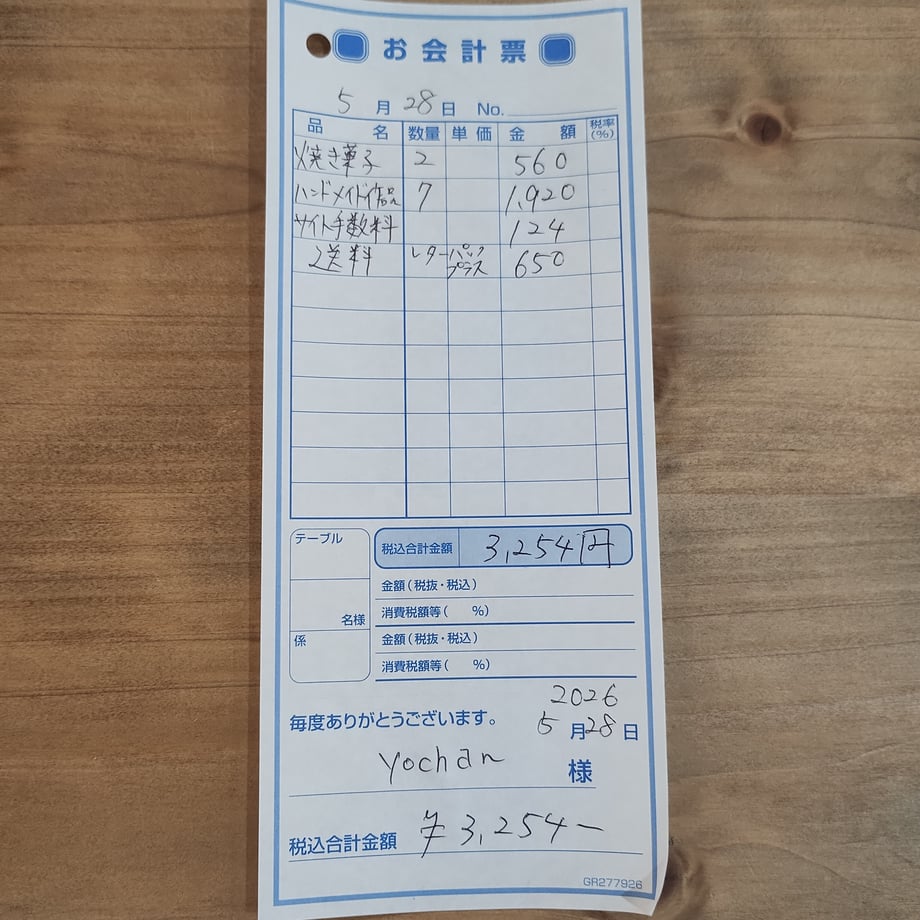 お会計票
5月28日 No.
品名 数量 単価 金額 税率(%)
焼き菓子 2 560
ハンドメイド作品 7 1,920
サイト手数料 124
送料 レターパックプラス 650
テーブル
税込合計金額 3,254円
金額(税抜・税込)
名様
消費税額等( %)
係
金額(税抜・税込)
消費税額等( %)
2026
毎度ありがとうございます。 5月28日
yochan 様
税込合計金額 ¥3,254-
GR277926